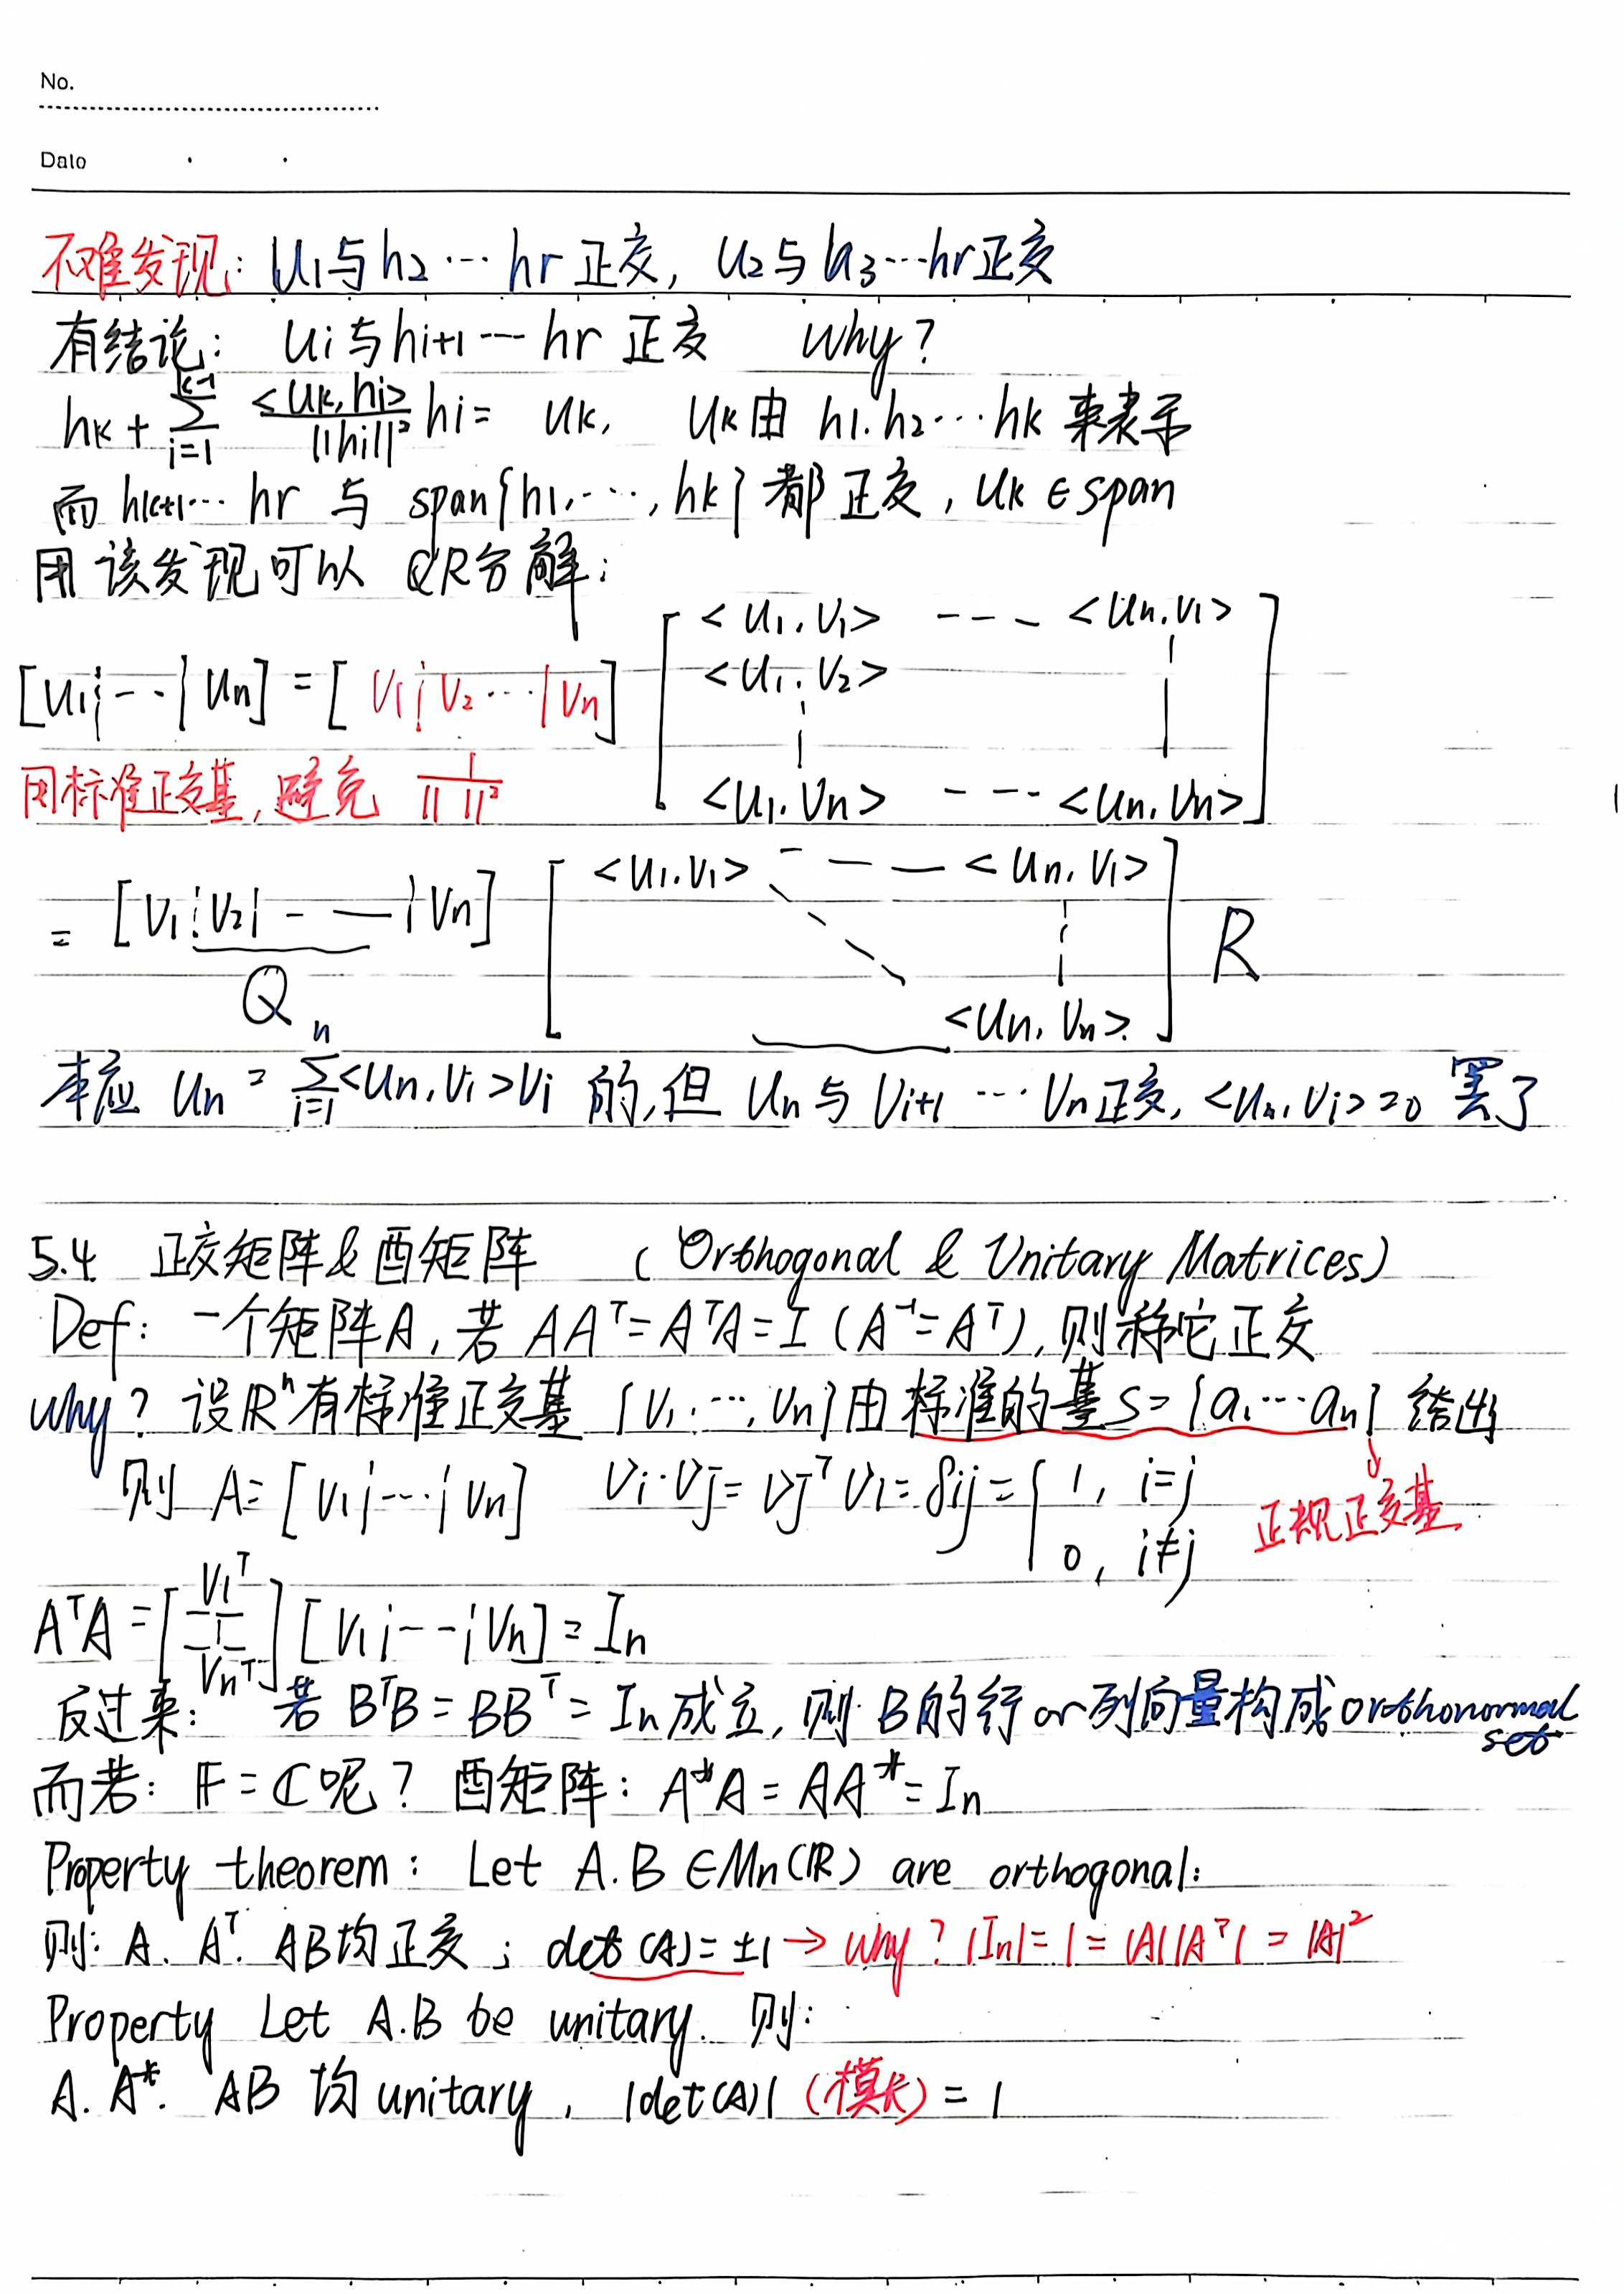 No.
Date
不难发现: u1与h2 ··· hr 正交, u2与h3···hr正交
有结论: ui与hi+1 ··· hr 正交 why?
hk + ∑_{i=1}^{k-1} <uk, hi>/||hi||² hi = uk, uk由 h1.h2···hk 来表示
而 hk+1··· hr 与 span{h1,···, hk} 都正交, uk ∈ span
用该发现可以 QR分解:
[u1¦--¦un] = [v1¦v2···¦vn] [<u1,v1> --- <un,v1>
<u1,v2>
<u1,vn> --- <un,vn>]
用标准正交基, 避免 1/|| ||²
= [v1¦v2¦-—¦vn] [<u1,v1> -—— <un,v1>
<un,vn>] R
Q
本应 un = ∑_{i=1}^{n} <un,vi>vi 的,但 un与vi+1 ··· vn正交, <un,vi>=0 罢了
5.4 正交矩阵&酉矩阵 (Orthogonal & Unitary Matrices)
Def: 一个矩阵A, 若 AAᵀ=AᵀA=I (A⁻¹=Aᵀ), 则称它正交
why? 设ℝⁿ有标准正交基 {v1,···,vn}由标准的基S={a1···an} 给出
则 A=[v1¦---¦vn] vi·vj=vjᵀvi=δij={1, i=j
0, i≠j
正规正交基
AᵀA=[v1ᵀ
vnᵀ][v1¦---¦vn]=In
反过来: 若 BᵀB=BBᵀ=In成立, 则 B的行or列向量构成orthonormal
set
而若: 𝔽=ℂ呢? 酉矩阵: A*A=AA*=In
Property theorem: Let A.B ∈Mn(ℝ) are orthogonal:
则: A. Aᵀ. AB均正交; det(A)=±1 → why? |In|=1=|A||Aᵀ|=|A|²
Property Let A.B be unitary. 则:
A. A*. AB 均unitary, |det(A)| (模长)=1